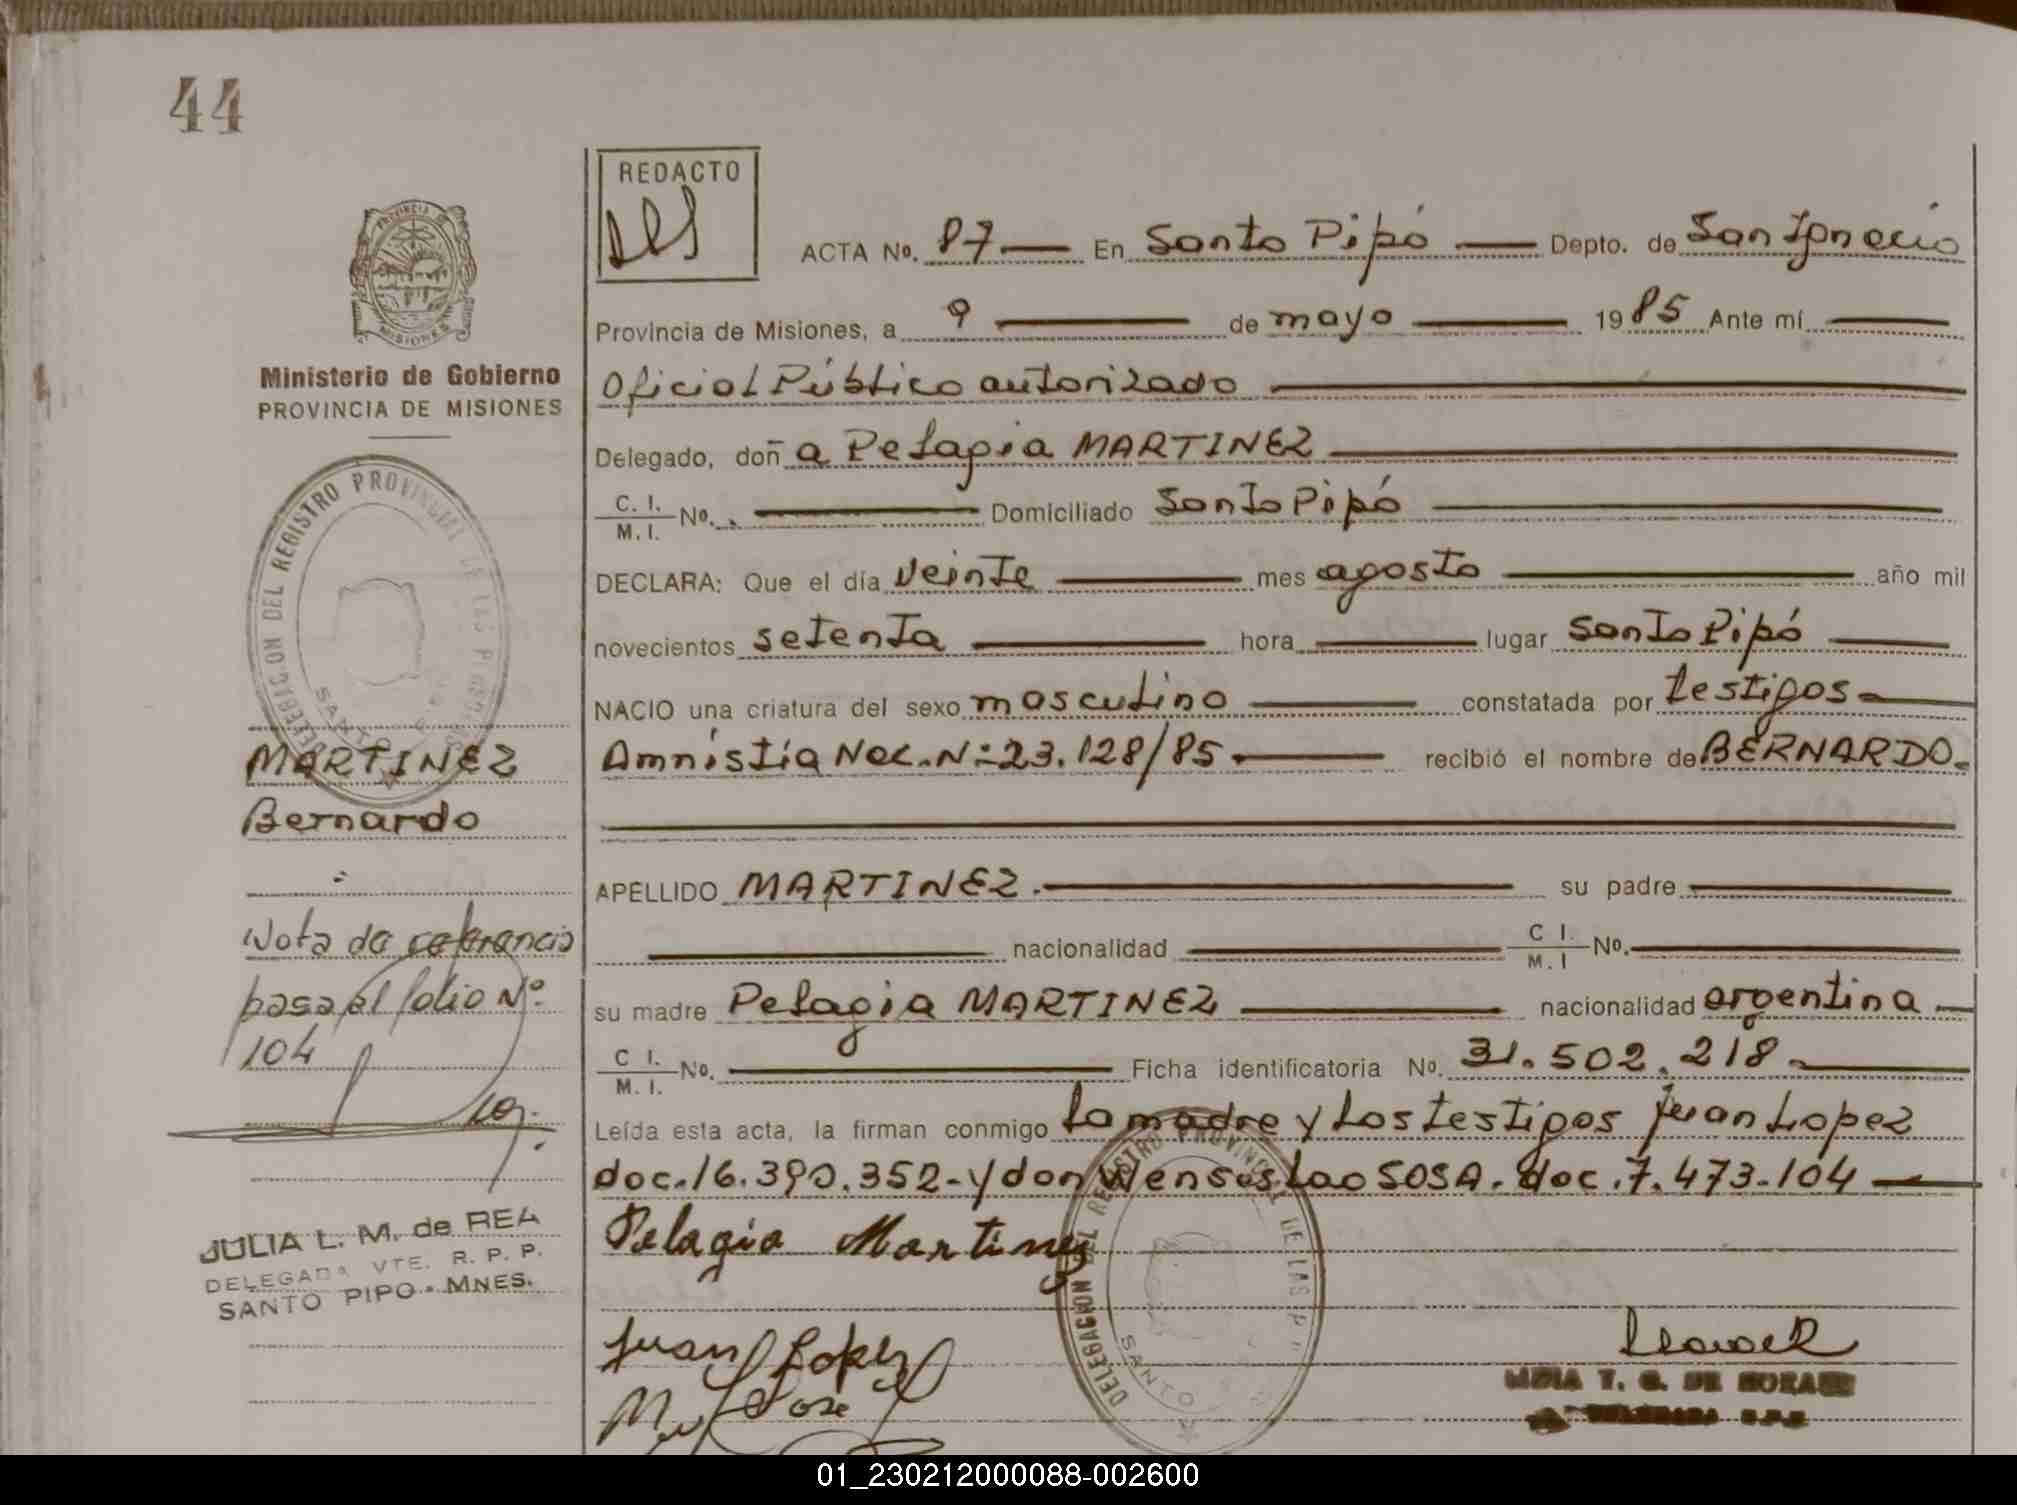 44
REDACTO
ACTA No. 87 En Santo Pipó Depto. de San Ignacio
Provincia de Misiones, a 9 de mayo 1985 Ante mí
Oficial Público autorizado
Delegado, doñ a Pelagia MARTINEZ
C. I. / M. I. No. Domiciliado Santo Pipó
DECLARA: Que el día veinte mes agosto año mil
novecientos setenta hora lugar Santo Pipó
NACIO una criatura del sexo masculino constatada por testigos
Amnistía Nac. N: 23.128/85 recibió el nombre de BERNARDO.
APELLIDO MARTINEZ. su padre
nacionalidad C I. / M. I No.
su madre Pelagia MARTINEZ nacionalidad argentina
C I. / M. I. No. Ficha identificatoria No. 31.502.218
Leída esta acta, la firman conmigo la madre y los testigos Juan Lopez
doc. 16.390.352- y don Wenseslao SOSA. doc. 7.473.104
Pelagia Martinez
Juan Lopez
LIDIA T. G. DE MORAES
PROVINCIA DE
MISIONES
Ministerio de Gobierno
PROVINCIA DE MISIONES
DELEGACION DEL REGISTRO PROVINCIAL DE LAS PERSONAS
SANTO
MARTINEZ
Bernardo
Nota de referencia
pasa al folio Nº
104
JULIA L. M. de REA
DELEGADA VTE. R. P. P.
SANTO PIPO - MNES.
DELEGACION DEL REGISTRO PROVINCIAL DE LAS P
SANTO
01_230212000088-002600